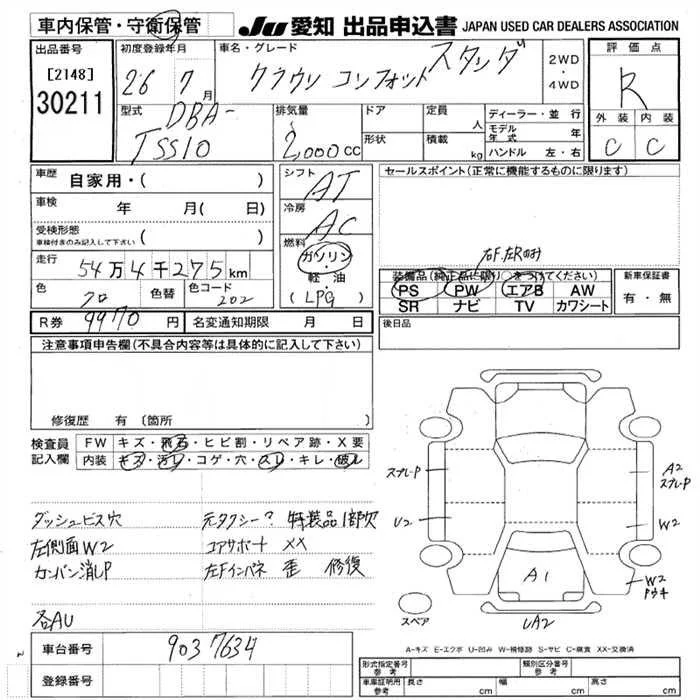 車内保管・守衛保管
JU 愛知 出品申込書 JAPAN USED CAR DEALERS ASSOCIATION
出品番号
[2148]
30211
初度登録年月
26 7月
車名・グレード
クラウン コンフォート スタンダ
2WD
・
4WD
評価点
R
外装 内装
C C
型式
DBA-
TSS10
排気量
2,000cc
ドア
形状
定員
人
積載
kg
ディーラー・並行
モデル年式 年
ハンドル 左・右
車歴 自家用・( )
車検 年 月( 日)
受検形態
車検付きのみ記入して下さい ( )
走行 54万4千275km
色 クロ 色替 色コード 202
シフト AT
冷房 AC
燃料
ガソリン
・
軽・油
(LPG)
セールスポイント(正常に機能するものに限ります)
右F.左Rのみ
装備品(純正品に限り○をつけてください)
PS PW エアB AW
SR ナビ TV カワシート
新車保証書
有・無
R券 9970円 名変通知期限 月 日
後日品
注意事項申告欄(不具合内容等は具体的に記入して下さい)
修復歴 有(箇所
検査員記入欄
FW キズ・飛石・ヒビ割・リペア跡・X要
内装 キズ・汚レ・コゲ・穴・スレ・キレ・破レ
ダッシュビス穴 元タクシー? 特装品1部欠
左側面W2 コアサポート XX
カンバン消しP 左Fインパネ 歪 修復
各AU
スプレ-P
U2
A2
スプレ-P
W2
W2
A1
UA2
スペア
A-キズ E-エクボ U-凹み W-補修跡 S-サビ C-腐食 XX-交換済
車台番号 9037634
登録番号
形式指定番号
参考
類別区分番号
参考
車庫証明用
参考
長さ cm 幅 cm 高さ cm